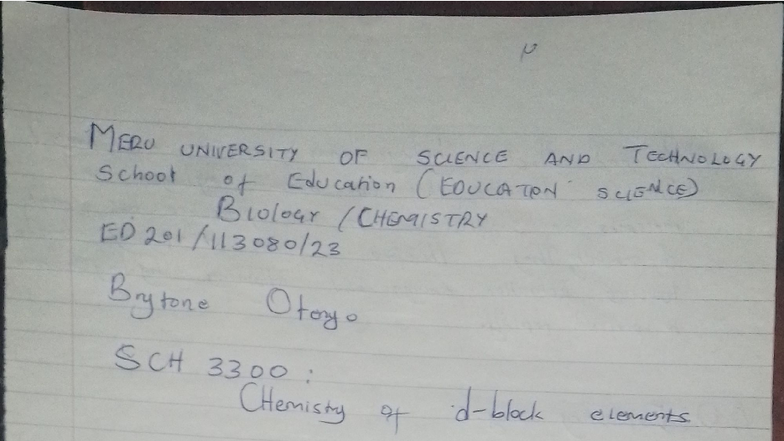 MERU UNIVERSITY OF SCIENCE AND TECHNOLOGY
School of Education (EDUCATION SCIENCE)
Biology / CHEMISTRY
ED201/113080/23
Brytone Otoyo
SCH 3300:
CHemistry of d-block elements